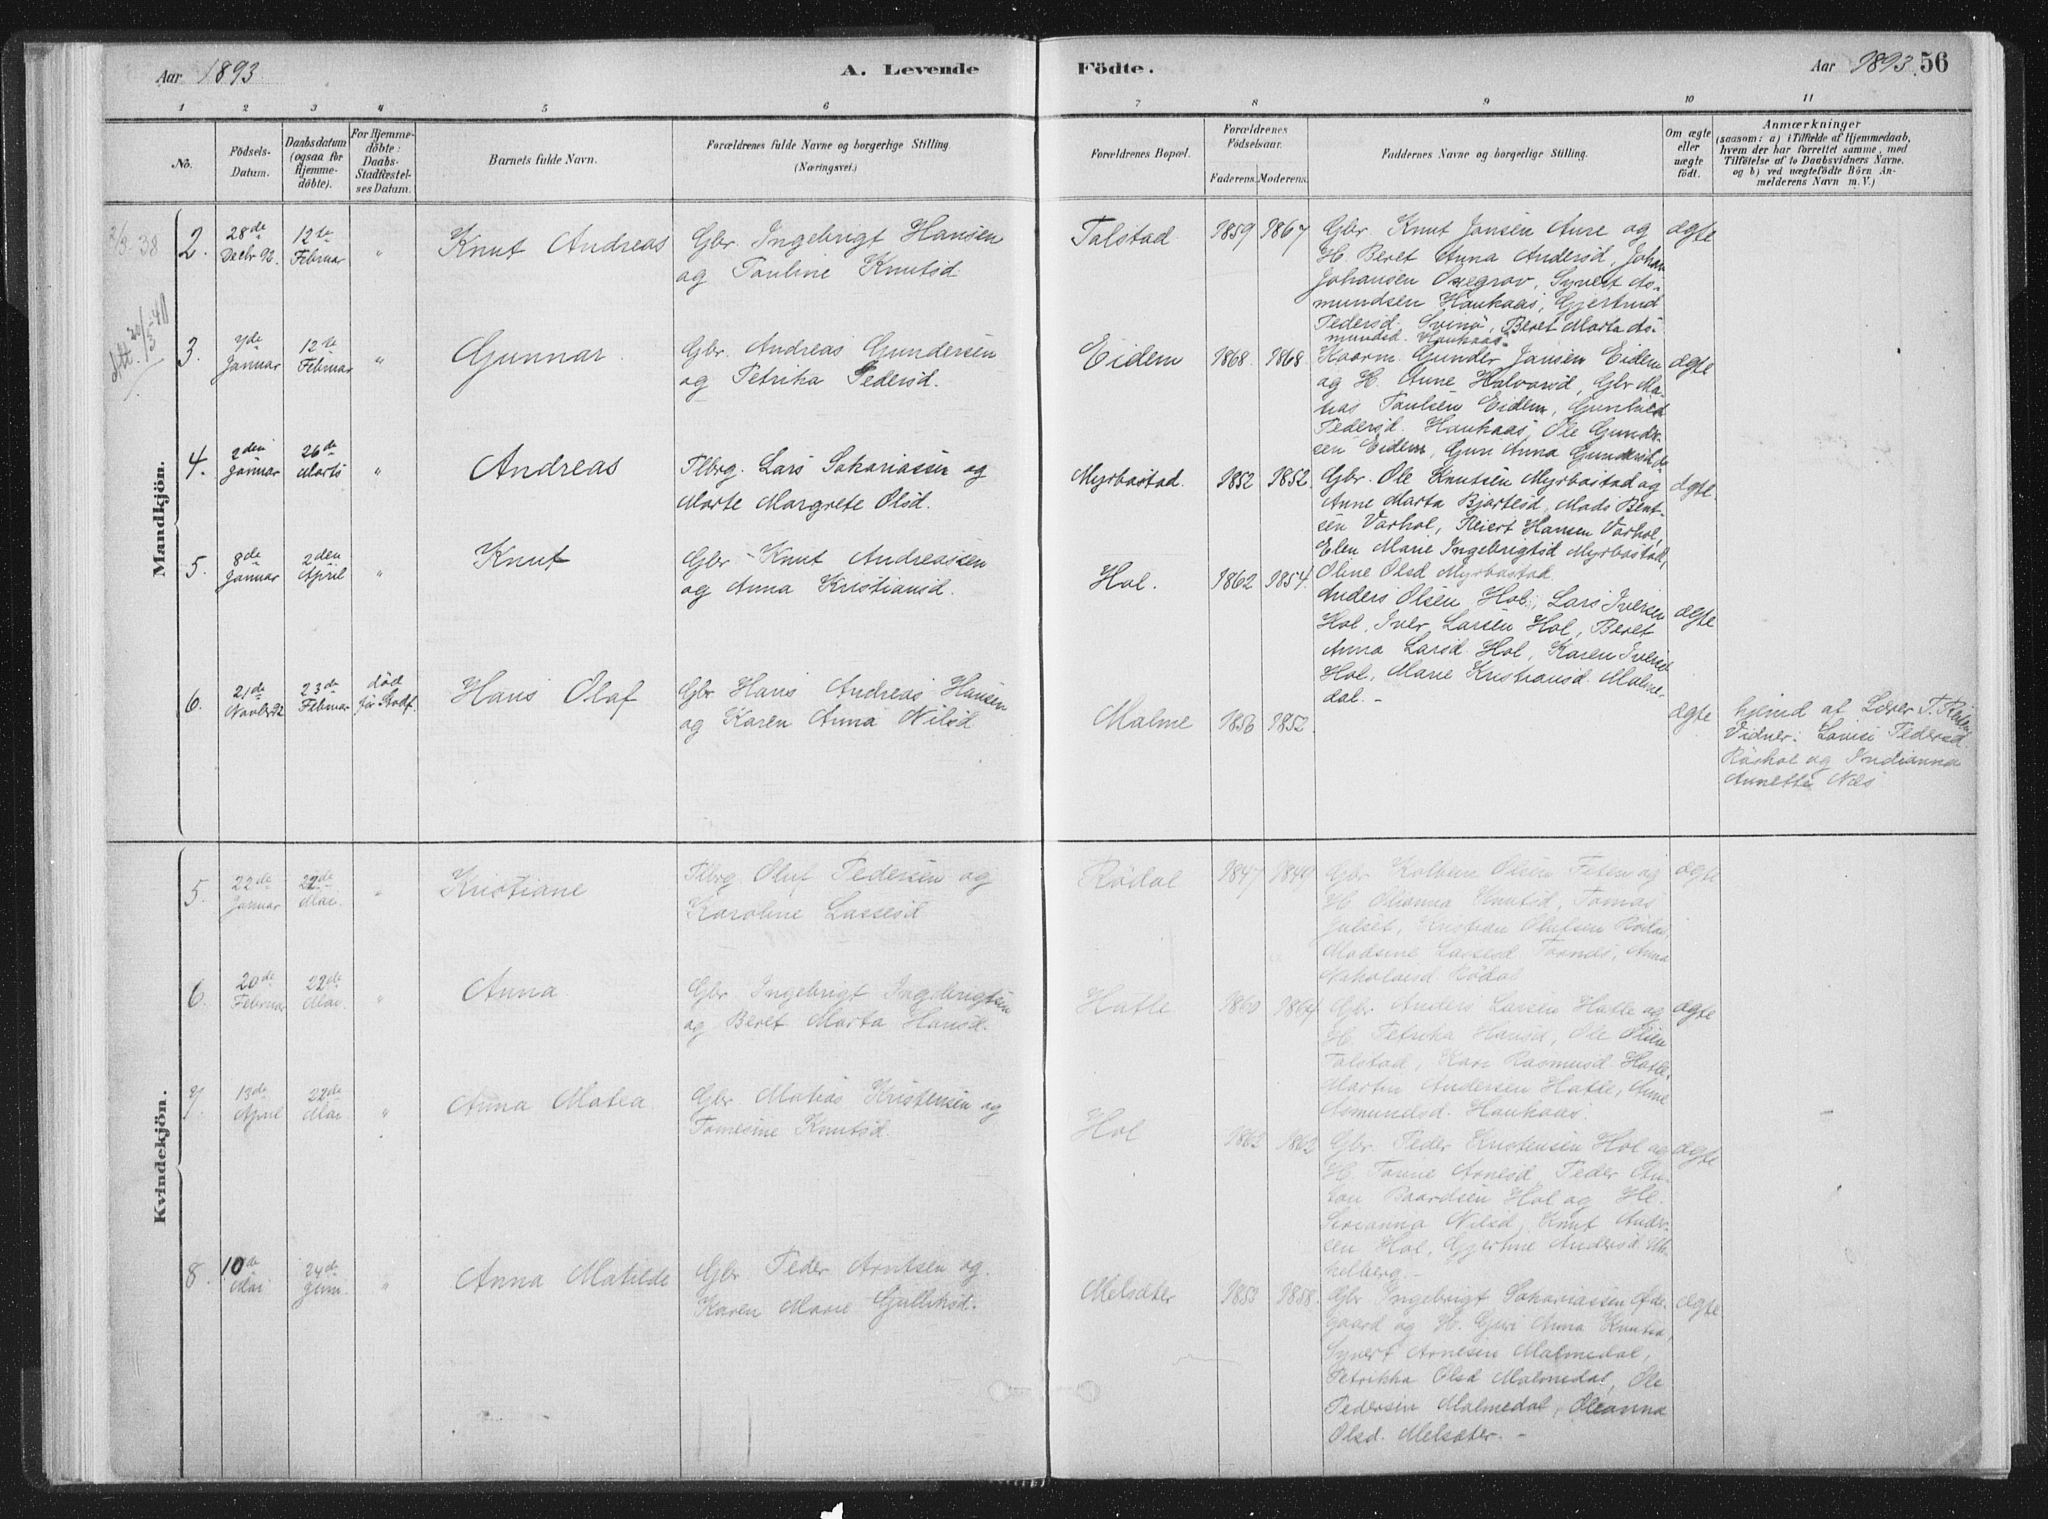 Aar 1893
A. Levende Födte.
Aar 1893. 56
1 2 3 4 5 6 7 8 9 10 11
No.
Födsels-
Datum.
Daabsdatum
(ogsaa for
Hjemme-
døbte).
For Hjemme-
döbte:
Daabs-
Stadfæstel-
ses Datum.
Barnets fulde Navn.
Forældrenes fulde Navne og borgerlige Stilling.
(Næringsvei.)
Forældrenes Bopæl.
Forældrenes
Födselsaar.
Faderens. Moderens.
Faddernes Navne og borgerlige Stilling.
Om ægte
eller
uægte
födt.
Anmærkninger
(saasom: a) i Tilfælde af Hjemmedaab,
hvem der har forrettet samme, med
Tilföielse af to Daabsvidners Navne.
og b) ved uægtefödte Börn An-
melderens Navn m. V.)
Mandkjön.
2.
28de
Decbr 92.
12te
Februar
"
Knut Andreas
Gbr. Ingebrigt Hansen
og Pauline Knutsd.
Talstad
1859 1867
Gbr. Knut Jansen Aure og
H. Beret Anna Andersd, Johan
Johansen Oxegrov, Syvert As-
mundsen Haukaas, Gjertrud
Pedersd. Svinö, Beret Marta As-
mundsd. Haukaas
ægte
3.
Januar
12te
Februar
"
Gunnar.
Gbr. Andreas Gundersen
og Petrika Pedersd.
Eidem
1868. 1868.
Kaarm. Gunder Jansen Eidem
og H. Anne Halvorsd, Gbr Ma-
tias Paulsen Eidem, Gunhild
Pedersd. Haukaas, Ole Gunder-
sen Eidem, Gun Anna Gundersd. do
ægte
4.
2den
Januar
26de
Marts
"
Andreas
Flbrg. Lars Sakariassen og
Marte Margrete Olsd.
Myrbostad.
1852 1852.
Gbr. Ole Knutsen Myrbostad og
Anne Marta Bjartesd, Mads Bent-
sen Varhol, Reiert Hansen Varhol,
Elen Marie Ingebrigtsd Myrbostad,
Oline Olsd Myrbostad.
ægte
5.
8de
Januar
2den
April
"
Knut
Gbr. Knut Andreassen
og Anna Kristiansd.
Hol.
1862 1854.
Anders Olsen Hol, Lars Iversen
Hol, Iver Larsen Hol, Beret
Anna Larsd. Hol, Karen Iversd
Hol, Marie Kristiansd Malme-
dal. -
ægte
6.
21de
Novbr 92
23de
Februar
död
för Stadf
Hans Olaf
Gbr Hans Andreas Hansen
og Karen Anna Nilsd
Malme
1856 1852.
ægte
hjemd af Lærer T.
Vidner: Lovise Pedersd
Röshol og Indianna
Annette Næs
Kvindekjön.
5.
22de
Januar
22de
Mai.
"
Kristiane
Flbrg Oluf Pedersen og
Karoline Lassesd.
Rödal
1847 1849
Gbr Kolbein Olsen Feten og
H Olianna Knutsd, Tomas
Julset, Kristian Olufsen Rödal,
Madsine Lassesd Tornes, Anna
Nikolaisd Rödal
ægte
6.
20de
Februar
22de
Mai.
"
Anna
Gbr Ingebrigt Ingebrigtsen
og Beret Marta Hansd.
Hatle
1860 1864
Gbr. Anders Larsen Hatle og
H. Petrika Hansd, Ole Olsen
Talstad, Kari Rasmusd. Hatle,
Martin Andersen Hatle, Anne
Asmundsd. Haukaas.
ægte
7.
13de
April
22de
Mai.
"
Anna Matea
Gbr. Matias Kristensen og
Tomesine Knutsd.
Hol
1863 1862
Gbr Peder Kristensen Hol og
H. Tomine Arnesd, Peder An-
ton Baardsen Hol og H.
Sirianna Nilsd, Knut Ander-
sen Hol, Gjertine Andersd.
holberg. -
ægte
8.
10de
Mai
24de
Juni
"
Anna Matilde
Gbr Peder Arntsen og
Karen Marie Gulliksd.
Melsæter
1853 1858.
Gbr Ingebrigt Sakariassen
gaard og H. Guri Anna Knutsd,
Syvert Arnesen Malmedal,
Petrikka Olsd Malmedal, Ole
Pedersen Malmedal, Oleanna
Olsd. Melsæter. -
ægte